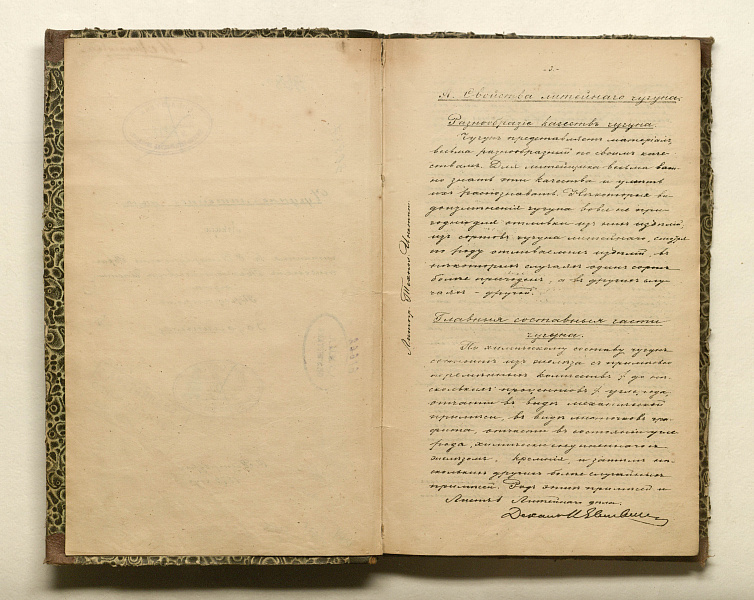 -3-
А. Свойства литейнаго чугуна.
Разнообразіе качествъ чугуна.
Чугунъ представляетъ матеріалъ
весьма разнообразный по своимъ каче-
ствамъ. Для литейщика весьма важ-
но знать эти качества и умѣть
ихъ распознавать. Нѣкоторыя ви-
доизмѣненія чугуна вовсе не при-
годны для отливки изъ нихъ издѣлій,
изъ сортовъ чугуна литейнаго, смотря
по роду отливаемыхъ издѣлій, въ
нѣкоторыхъ случаяхъ одинъ сортъ
болѣе пригоденъ, а въ другихъ слу-
чаяхъ - другой.
Главныя составныя части
чугуна.
По химическому составу чугунъ
состоитъ изъ желѣза съ примѣсью
перемѣннаго количества до нѣ-
сколькихъ процентовъ углерода,
отчасти въ видѣ механической
примѣси, въ видѣ листочковъ гра-
фита, отчасти въ состояніи угле
рода, химически соединеннаго съ
желѣзомъ, кремнія, и затѣмъ нѣ-
сколькихъ другихъ болѣе случайныхъ
примѣсей. Родъ этихъ примѣсей и
Листъ Литейнаго дѣла.
Деканъ
Литогр. Технол. Инстит.